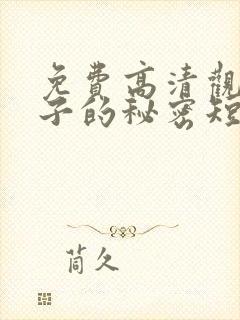 免費高清觀
子的秘密短
茼久